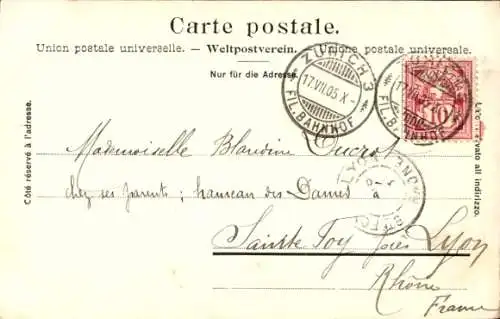 Carte postale.
Union postale universelle. – Weltpostverein. – Unione postale universale.
Nur für die Adresse.
ZÜRICH 3
17.VII.05.X-
FIL. BAHNHOF
17.VII.05
FIL. BAHNHOF
10
Côté réservé à l'adresse.
Lato riservato all indirizzo.
Mademoiselle Blandine Ducrot
chez ses parents; hameau des Dames
Sainte Foy près Lyon
Rhône
France